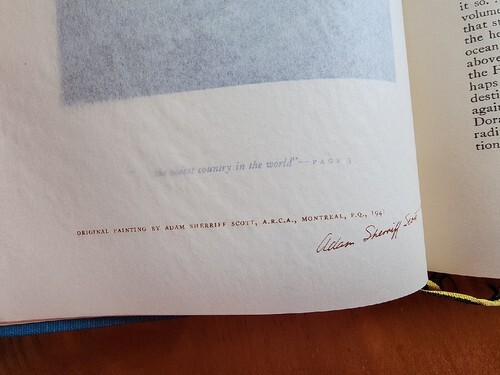 country in the world"—PAGE 3
ORIGINAL PAINTING BY ADAM SHERRIFF SCOTT, A.R.C.A., MONTREAL, P.Q., 1941
Adam Sherriff Scott
it so.
volume
that st
the he
ocean
above
the H
haps
desti
again
Dora
radi
tion